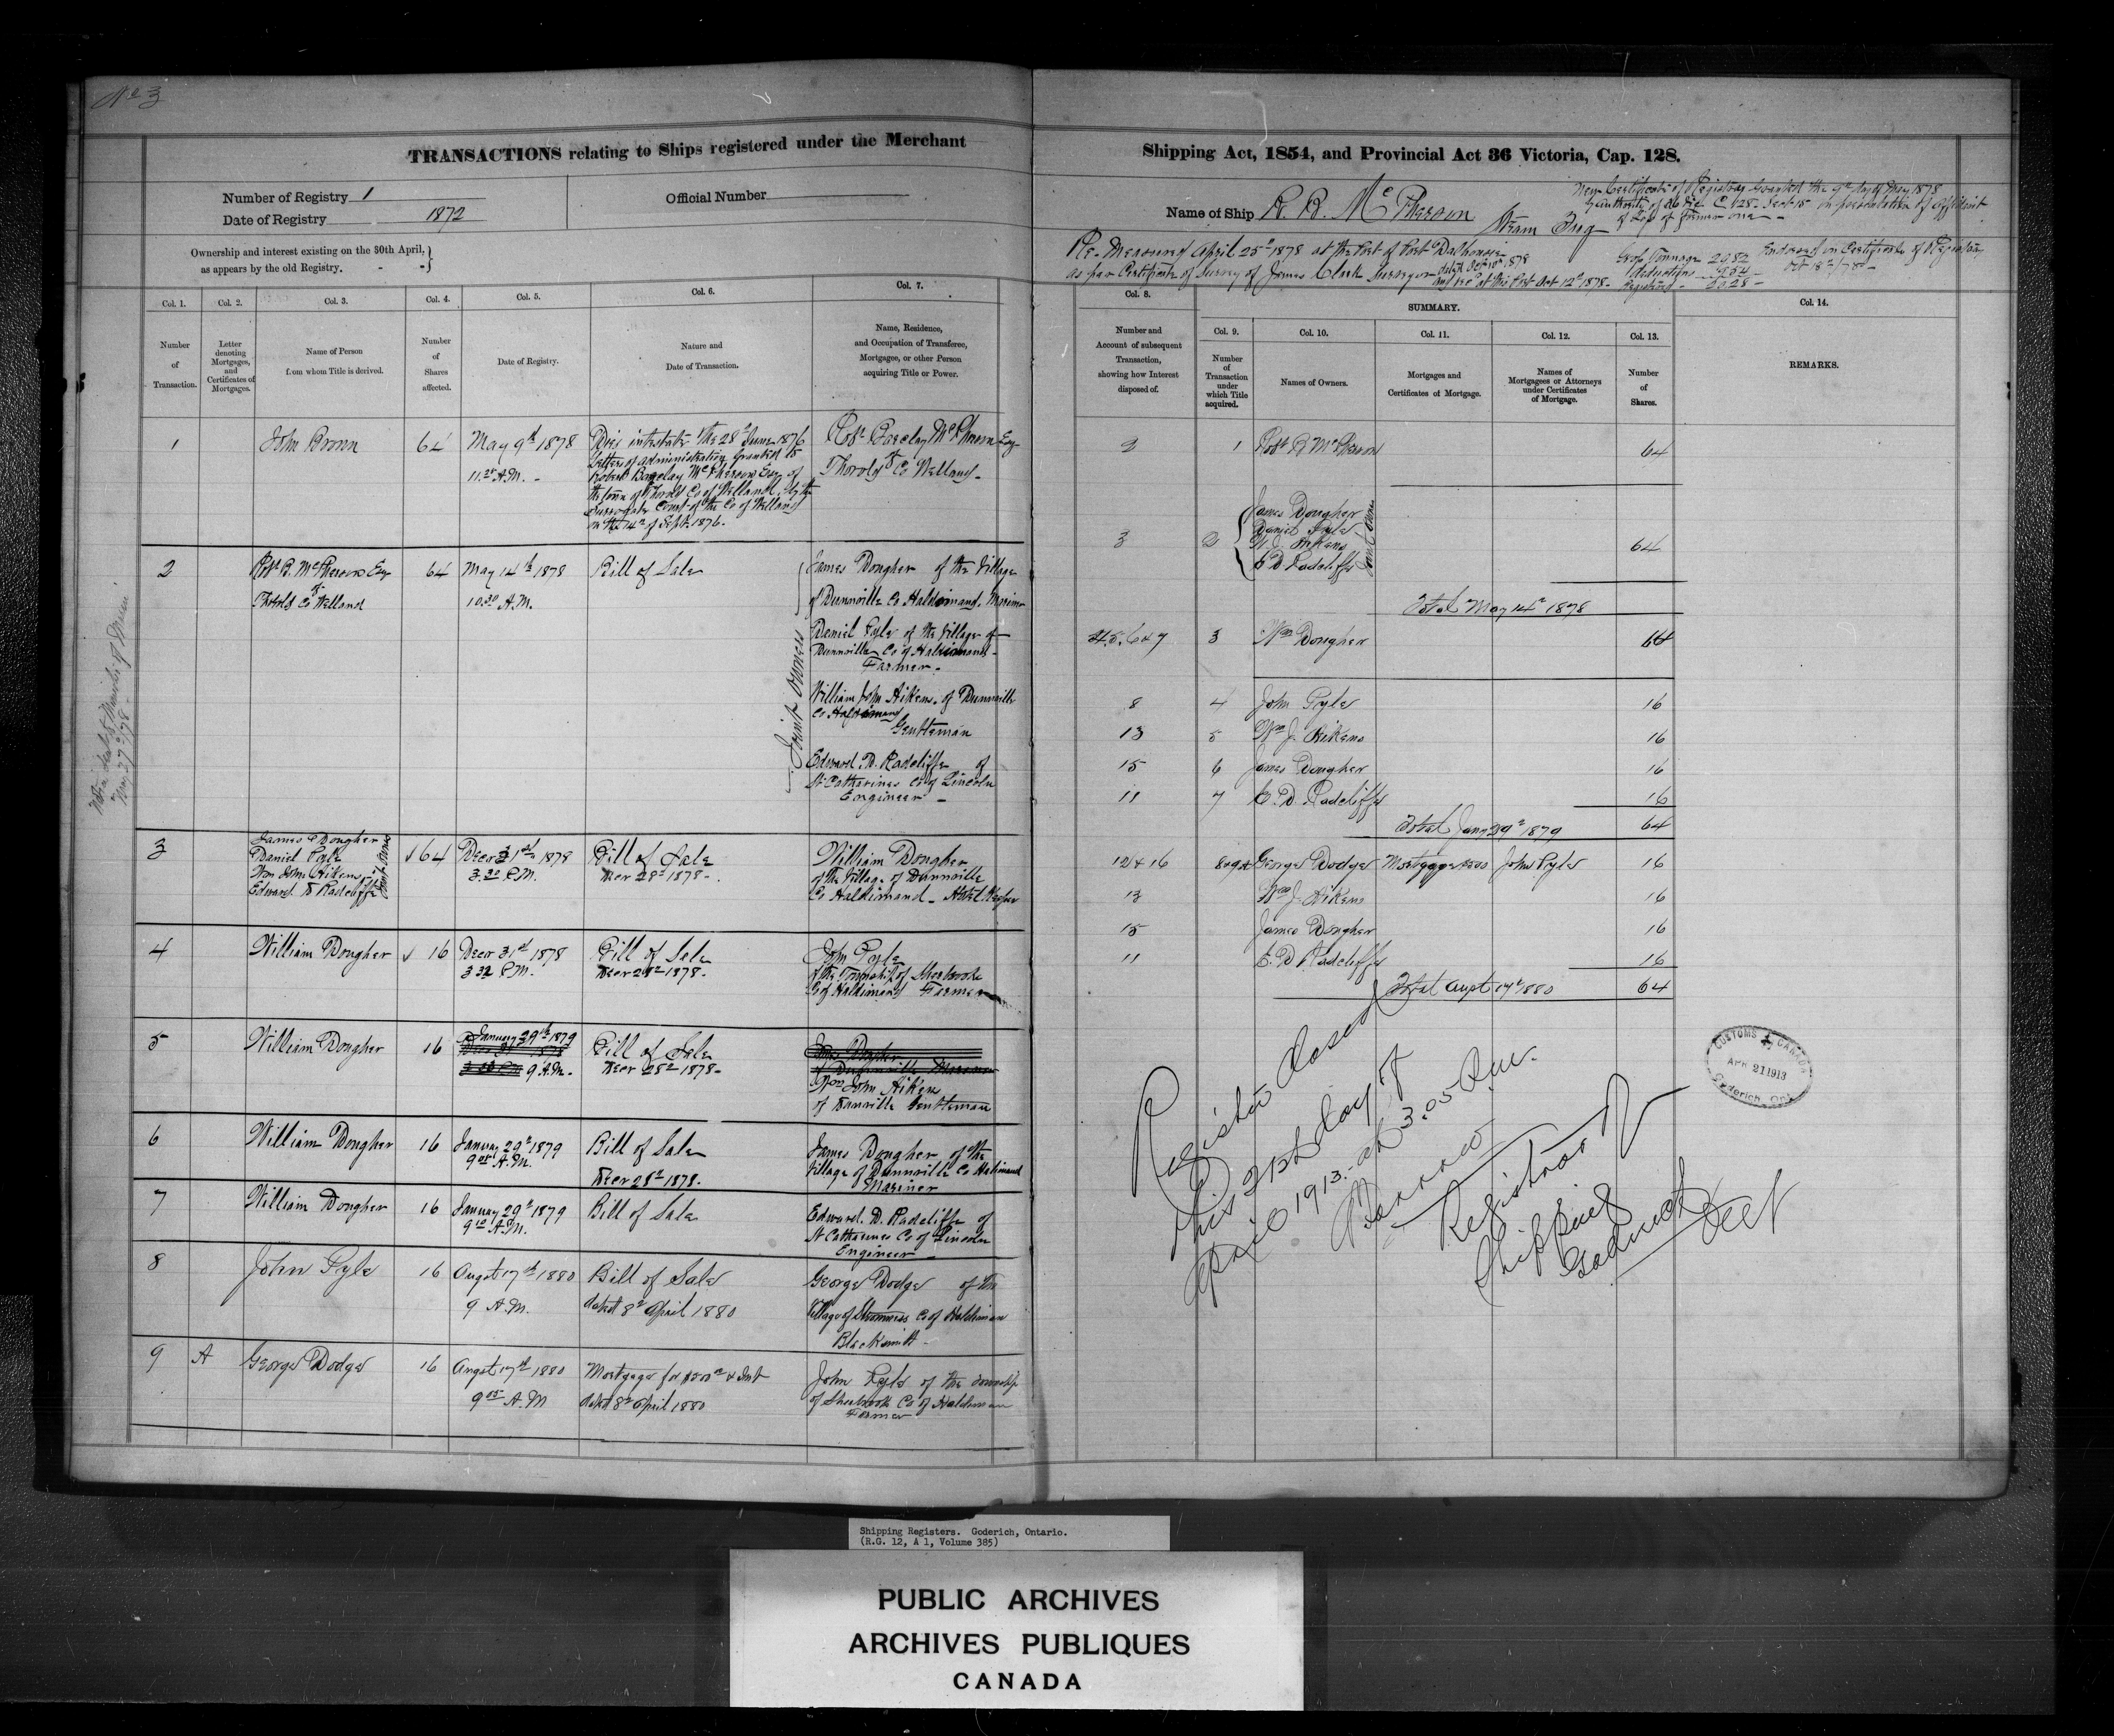 No 3
TRANSACTIONS relating to Ships registered under the Merchant
Number of Registry 1
Date of Registry 1872
Official Number
Ownership and interest existing on the 30th April,
as appears by the old Registry. - -
Col. 1.
Col. 2.
Col. 3.
Col. 4.
Col. 5.
Col. 6.
Col. 7.
Number
of
Transaction.
Letter
denoting
Mortgages,
and
Certificates of
Mortgages.
Name of Person
from whom Title is derived.
Number
of
Shares
affected.
Date of Registry.
Nature and
Date of Transaction.
Name, Residence,
and Occupation of Transferee,
Mortgagee, or other Person
acquiring Title or Power.
1 John Brown 64 May 9th 1878
11 A.M.
Died intestate the 28th June 1876
Letters of administration granted to
Robert Barclay McPherson Esq of
the town of Thorold Co of Welland by the
Surrogate Court of the Co of Welland
on the 14th of Sept. 1876.
Robt Barclay McPherson Esq
of
Thorold Co Welland
2 Robt B. McPherson Esq
of
Thorold Co Welland
64 May 14th 1878
10.30 A.M.
Bill of Sale
Joint Owners
James Dougher of the Village
of Dunnville Co Haldimand. Mariner
Daniel Pyle of the Village of
Dunnville Co of Haldimand
Farmer
William John Aikens of Dunnville
Co Haldimand
Gentleman
Edward D. Radcliffe of
St Catharines Co of Lincoln
Engineer
3 James Dougher
Daniel Pyle
Wm John Aikens
Edward D Radcliffe
Joint Owners
64 Decr 31st 1878
3.30 P.M.
Bill of Sale
Decr 28th 1878
William Dougher
of the Village of Dunnville
Co Haldimand - Hotel Keeper
4 William Dougher 16 Decr 31st 1878
3 32 P.M.
Bill of Sale
Decr 28th 1878
John Pyle
of the Township of Sherbrooke
Co of Haldimand Farmer
5 William Dougher 16 January 29th 1879
9 A.M.
Bill of Sale
Decr 28th 1878
James Dougher
of Dunnville Mariner
Wm John Aikens
of Dunnville Gentleman
6 William Dougher 16 January 29th 1879
9 05 A.M.
Bill of Sale
Decr 28th 1878.
James Dougher of the
Village of Dunnville Co Haldimand
Mariner
7 William Dougher 16 January 29th 1879
9 10 A.M.
Bill of Sale
Edward. D. Radcliffe of
St Catharines Co of Lincoln
Engineer
8 John Pyle 16 August 17th 1880
9 A.M.
Bill of Sale
dated 8th April 1880
George Dodge of the
Village of Stromness Co of Haldiman
Blacksmith
9 A George Dodge 16 August 17th 1880
9 05 A.M
Mortgage for $500 & Int
dated 8th April 1880
John Pyle of the township
of Sherbrook Co of Haldiman
Farmer
Shipping Act, 1854, and Provincial Act 36 Victoria, Cap. 128.
Name of Ship R. B. McPherson Steam Tug
New Certificate of Registry Granted the 9th day of May 1878
of Loss of former one
Re-Measured April 25th 1878 at the Port of Port Dalhousie
as per Certificate of Survey of James Clark Surveyor
at this Port Oct 12th 1878
Gross Tonnage 29.82
deductions 9.54
Registered 20.28
Endorsed on Certificate of Registry
Oct 18th /78
Col. 8.
SUMMARY.
Col. 14.
Number and
Account of subsequent
Transaction,
showing how Interest
disposed of.
Col. 9.
Col. 10.
Col. 11.
Col. 12.
Col. 13.
Number
of
Transaction
under
which Title
acquired.
Names of Owners.
Mortgages and
Certificates of Mortgage.
Names of
Mortgagees or Attorneys
under Certificates
of Mortgage.
Number
of
Shares.
REMARKS.
2 1 Robt B McPherson 64
3 2 James Dougher
Daniel Pyle
W. J. Aikens
E D Radcliffe
Joint Owners
64
Total May 14th 1878
4.5.6&7 3 Wm Dougher 64
8 4 John Pyle 16
13 5 Wm J. Aikens 16
15 6 James Dougher 16
11 7 E. D. Radcliffe 16
Total Jany 29th 1879 64
12&16 8&9A George Dodge Mortgage $500 John Pyle 16
13 Wm J. Aikens 16
15 James Dougher 16
11 E. D Radcliffe 16
Total Augt 17th 1880 64
Register closed
this 21st day of
April 1913. at 3.05 P.M.
Registrar of
Shipping
Goderich
Ont
CUSTOMS CANADA
APR 21 1913
Goderich, Ont.
Shipping Registers. Goderich, Ontario.
(R.G. 12, A 1, Volume 385)
PUBLIC ARCHIVES
ARCHIVES PUBLIQUES
CANADA